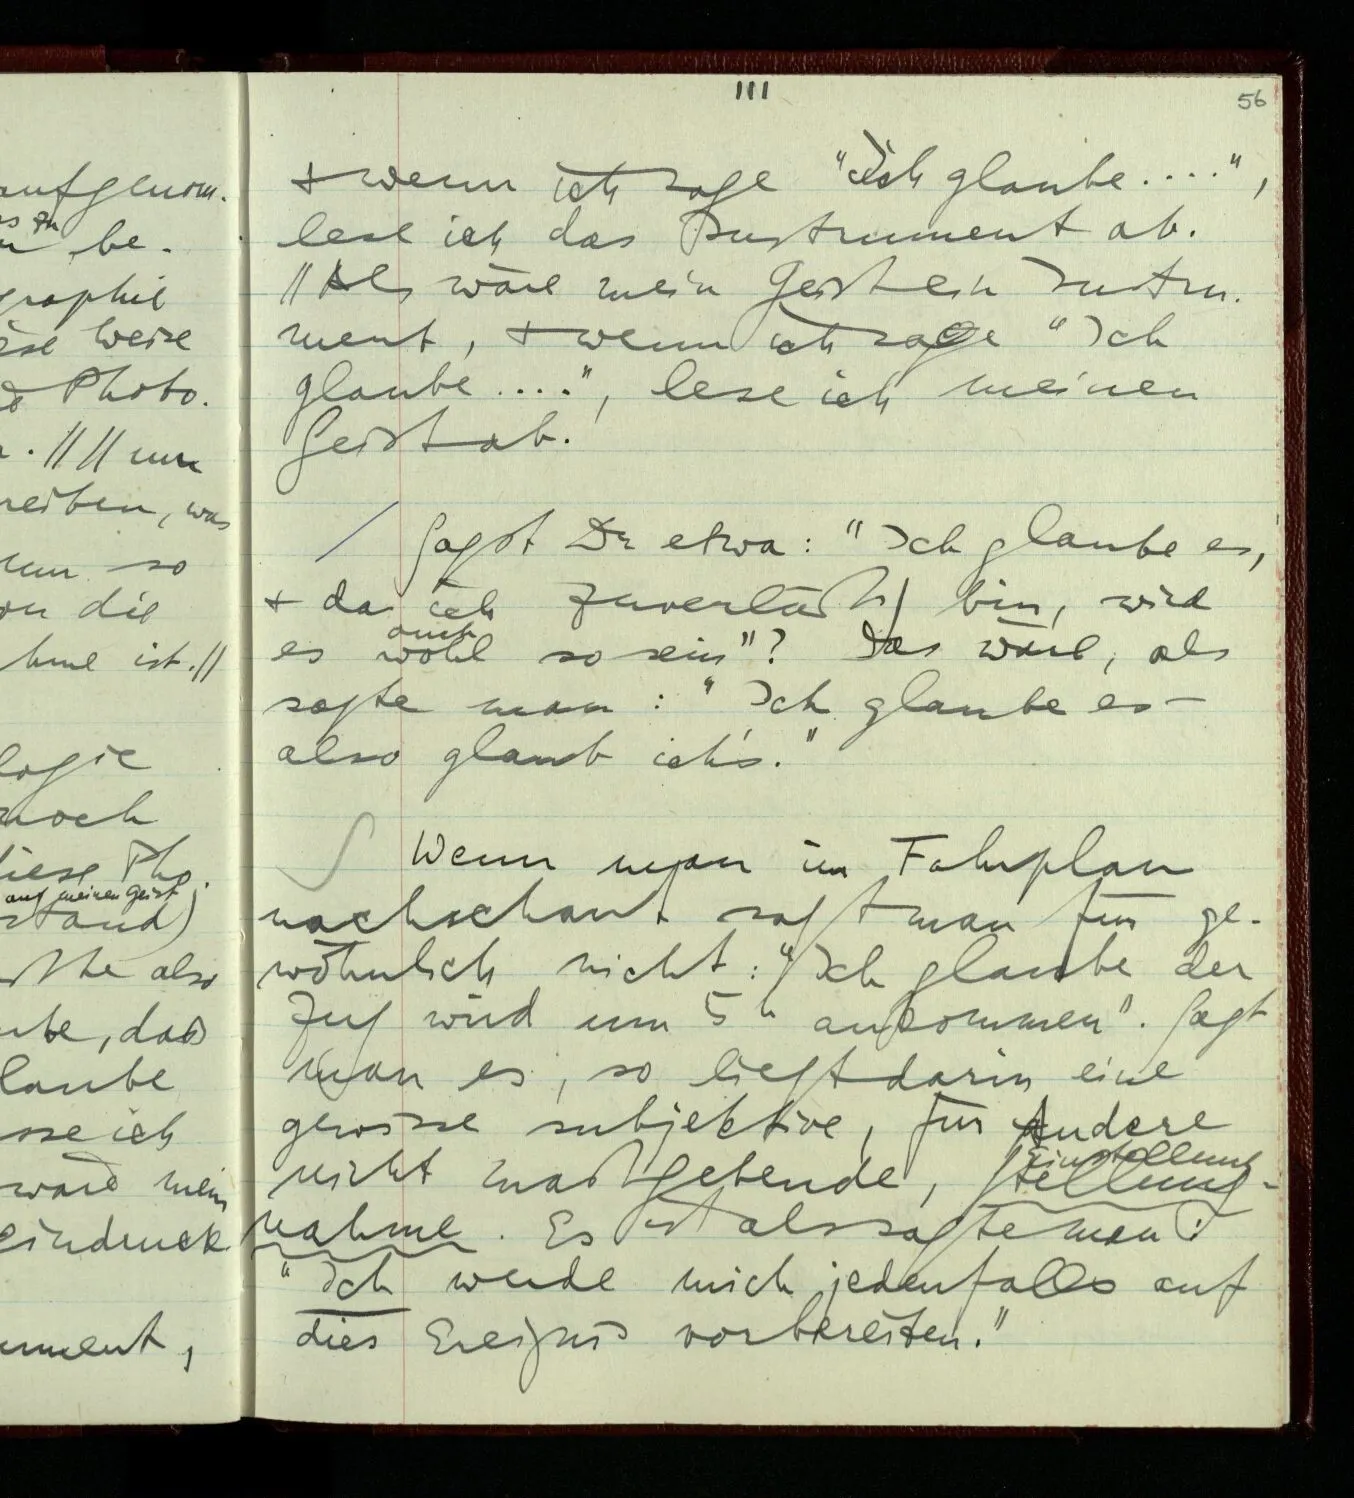 aufgenom-
zu
be-
graphie
Weise
Photo-
. // // nun
, was
nun so
die
ist. //
logie
noch
diese Pho-
auf meinen Geist
also
, daß
glaube
ich
wäre mein
Eindruck
strument,
III
56
+ wenn ich sage "Ich glaube....",
lese ich das Instrument ab.
// Als wäre mein Geist ein Instru-
ment, + wenn ich sage "Ich
glaube....", lese ich meinen
Geist ab.
/ Sagst Du etwa: "Ich glaube es,
+ da ich zuverläßig bin, wird
auch
es wohl so sein"? Das wäre, als
sagte man: "Ich glaube es –
also glaub ich's."
∫ Wenn man im Fahrplan
nachschaut sagt man für ge-
wöhnlich nicht: "Ich glaube der
Zug wird um 5h ankommen". Sagt
man es, so liegt darin eine
gewisse subjektive, für Andere
Einstellung
nicht maßgebende, Stellung-
nahme. Es ist als sagte man:
"Ich werde mich jedenfalls auf
dies Ereignis vorbereiten."